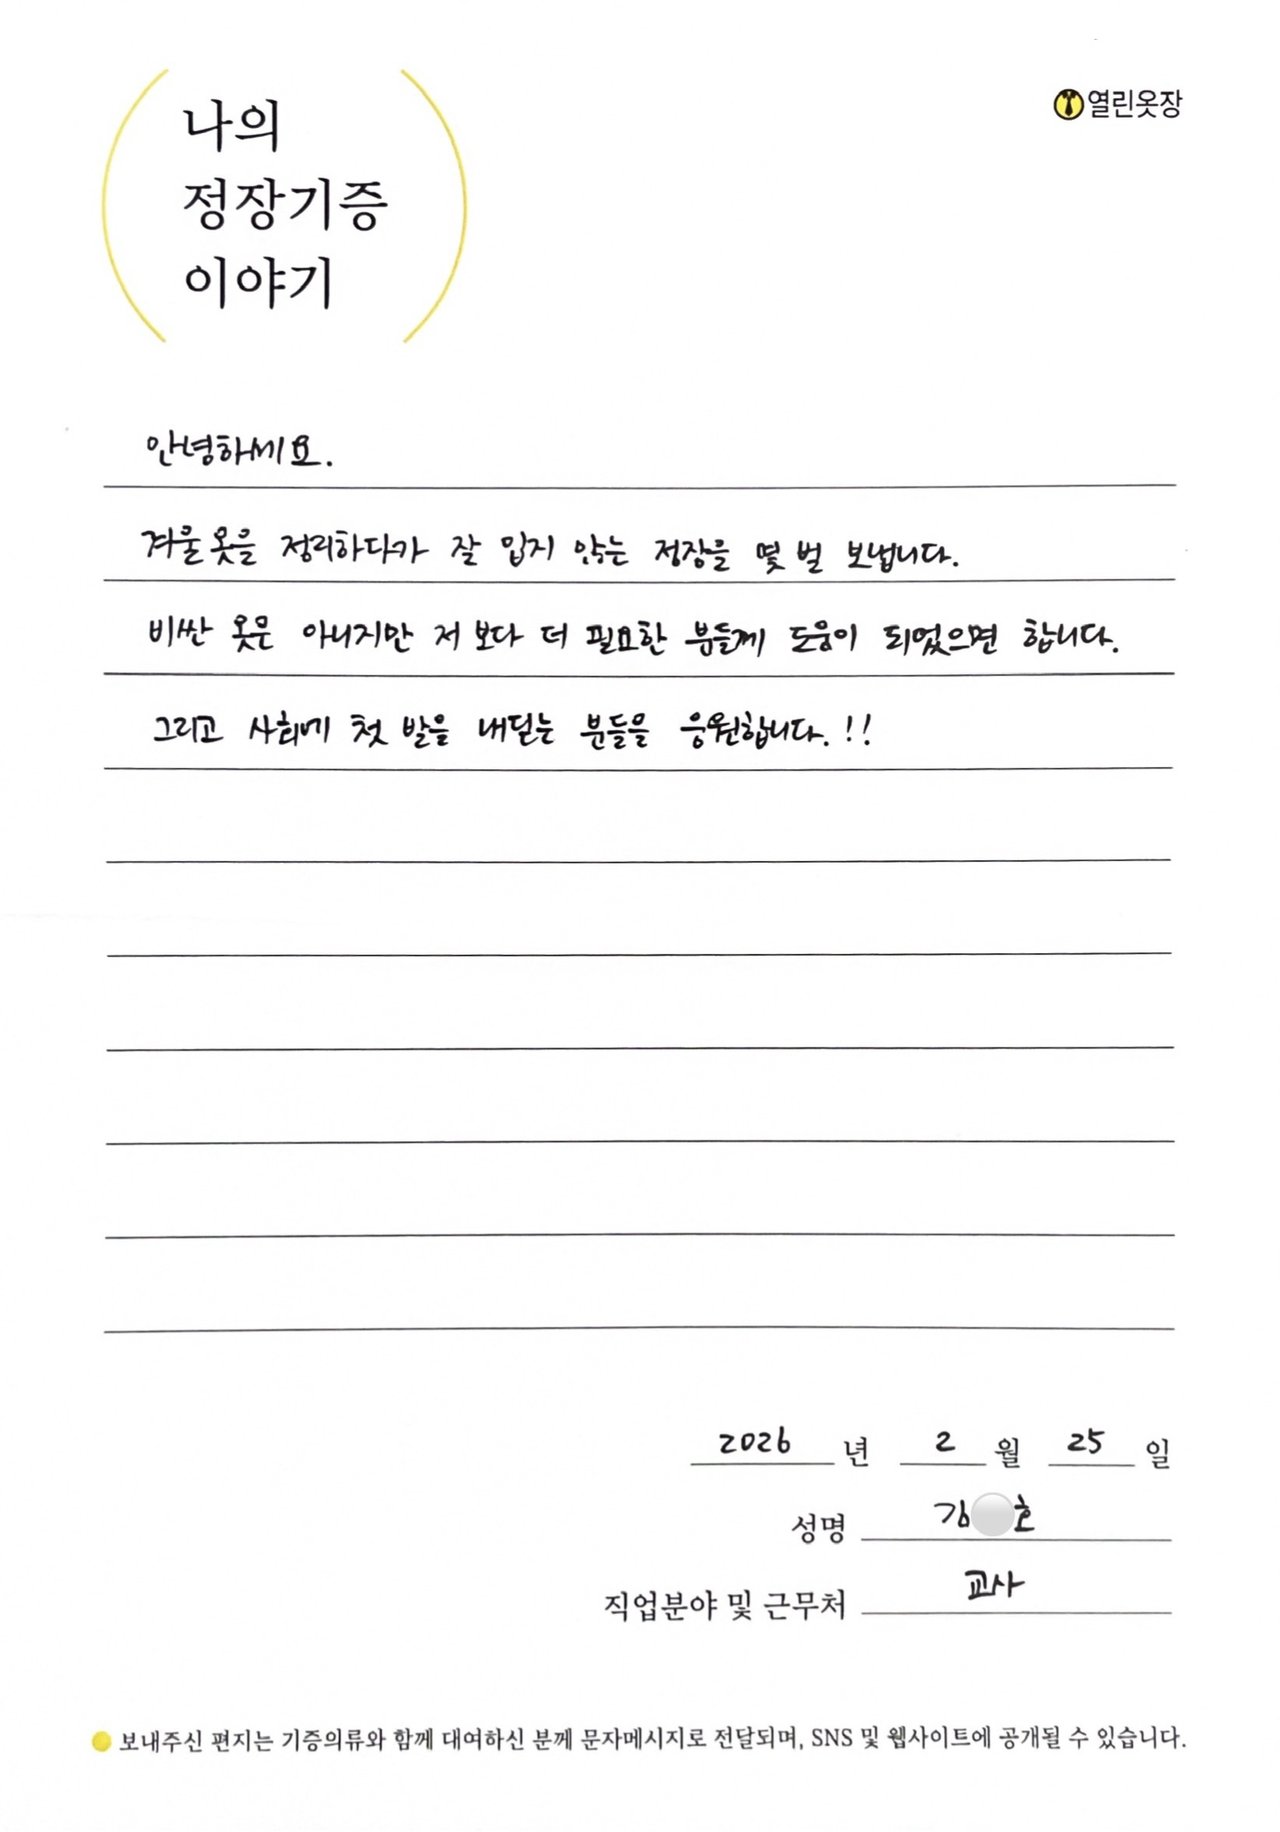 나의
정장기증
이야기
열린옷장
안녕하세요.
겨울 옷을 정리하다가 잘 입지 않는 정장을 몇 벌 보냅니다.
비싼 옷은 아니지만 저 보다 더 필요한 분들께 도움이 되었으면 합니다.
그리고 사회에 첫 발을 내딛는 분들을 응원합니다.!!
2026 년 2 월 25 일
성명 김 호
직업분야 및 근무처 교사
보내주신 편지는 기증의류와 함께 대여하신 분께 문자메시지로 전달되며, SNS 및 웹사이트에 공개될 수 있습니다.